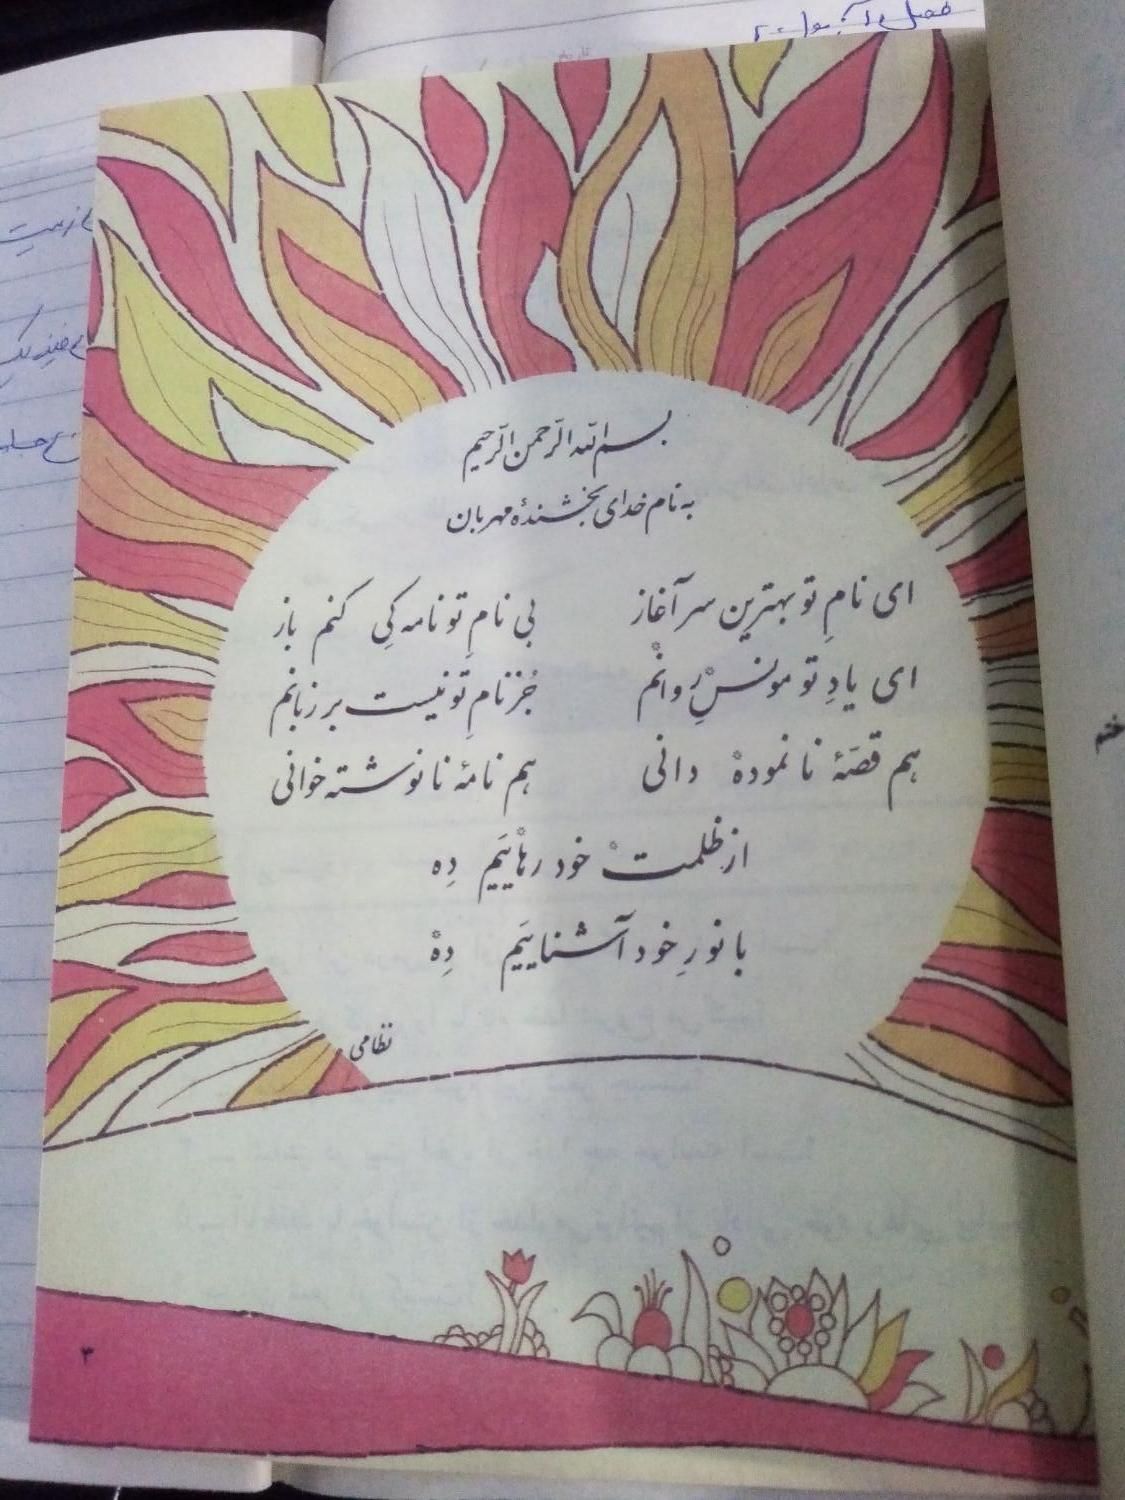 بسم الله الرّحمن الرّحیم
به نام خدای بخشندهٔ مهربان
ای نامِ تو بهترین سرآغاز بی نامِ تو نامه کِی کنم باز
ای یادِ تو مونسِ روانم جُز نامِ تو نیست بر زبانم
هم قصّهٔ نانموده دانی هم نامهٔ نانوشته خوانی
از ظلمت خود رهاییَم دِه
با نورِ خود آشناییَم دِه
نظامی
۳